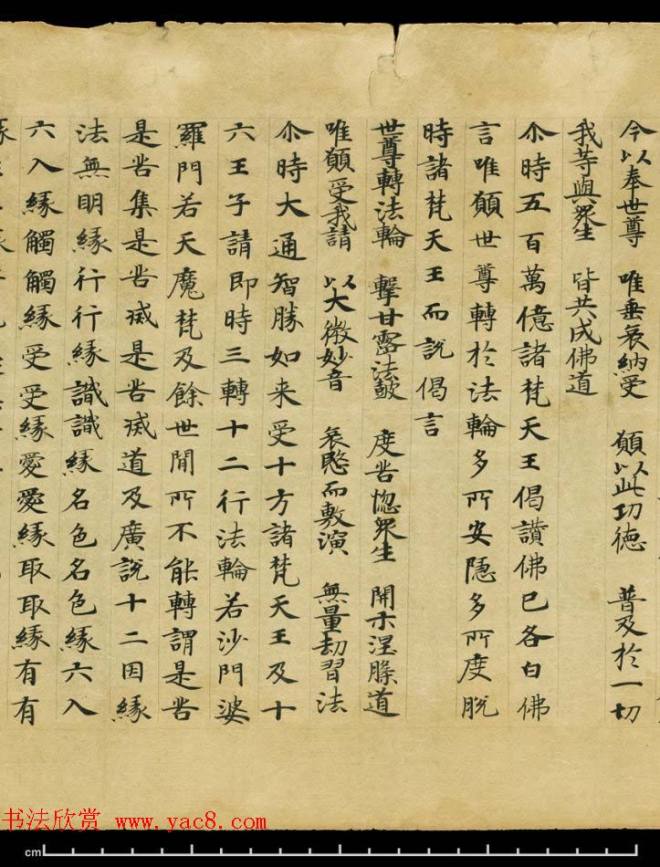 今以奉世尊 唯垂哀納受 願以此功德 普及於一切
我等與眾生 皆共成佛道
尒時五百萬億諸梵天王偈讚佛已各白佛
言唯願世尊轉於法輪多所安隱多所度脫
時諸梵天王而說偈言
世尊轉法輪 擊甘露法皷 度苦惱眾生 開示涅槃道
唯願受我請 以大微妙音 哀愍而敷演 無量劫習法
尒時大通智勝如来受十方諸梵天王及十
六王子請即時三轉十二行法輪若沙門婆
羅門若天魔梵及餘世間所不能轉謂是苦
是苦集是苦滅是苦滅道及廣說十二因緣
法無明緣行行緣識識緣名色名色緣六入
六入緣觸觸緣受受緣愛愛緣取取緣有有
书法欣赏 www.yac8.com
cm